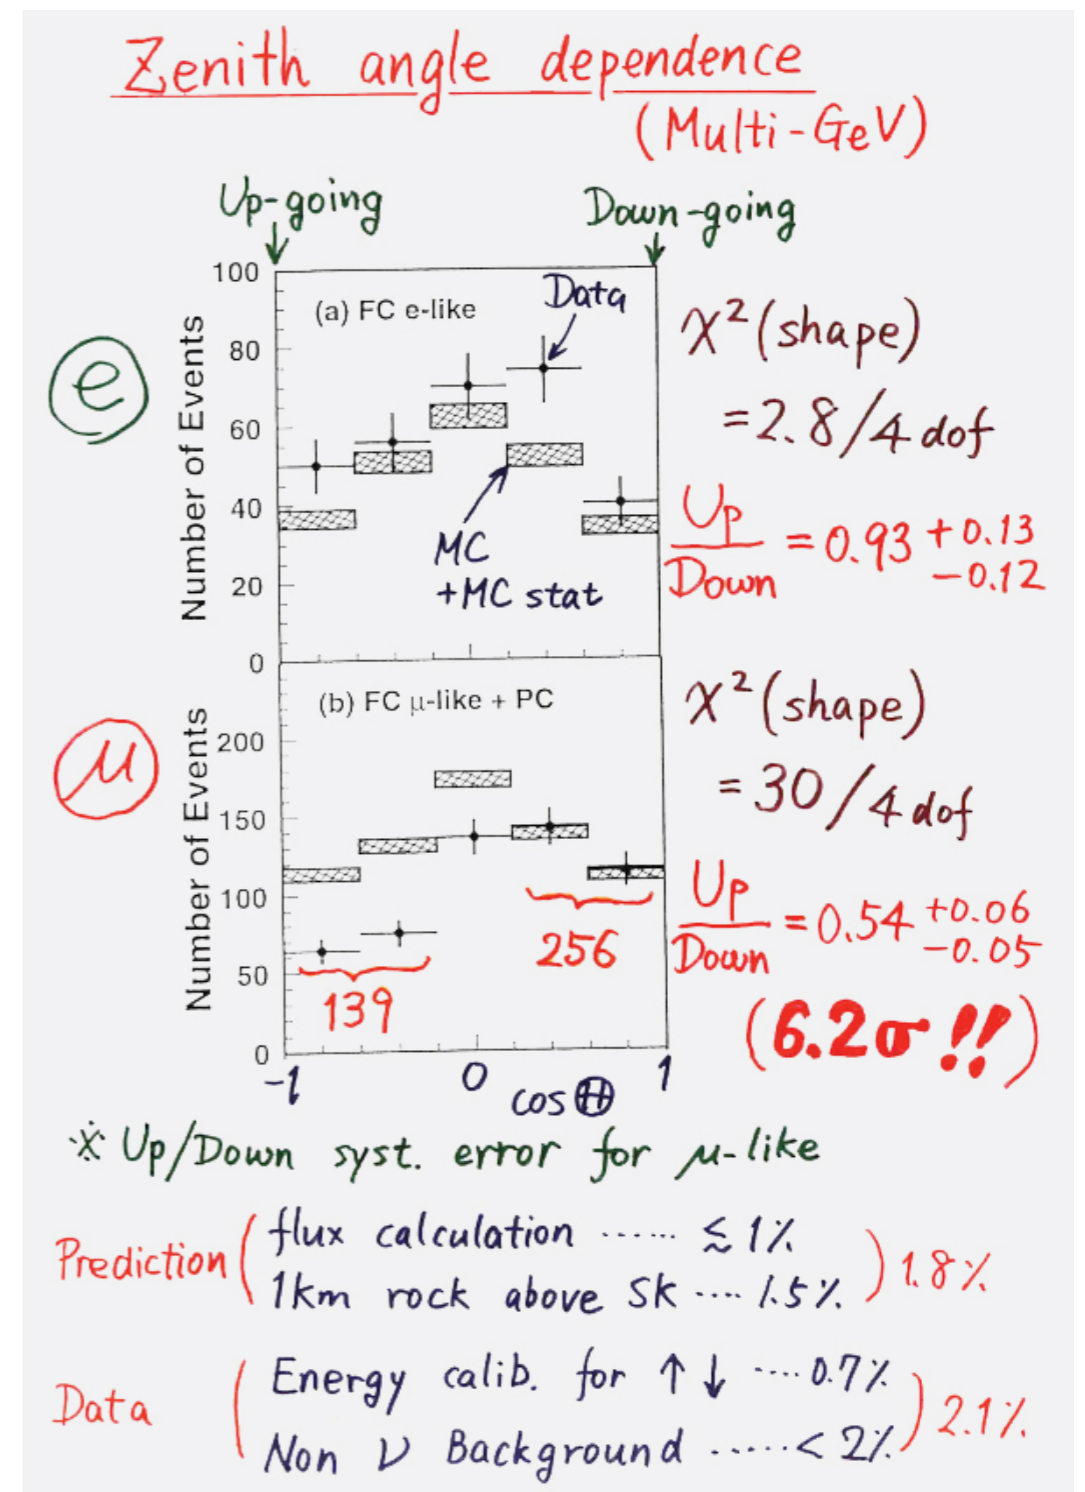 Zenith angle dependence
(Multi-GeV)
Up-going
Down-going
100
80
60
40
20
0
Number of Events
(a) FC e-like
Data
MC
+MC stat
e
χ²(shape)
=2.8/4 dof
Up
Down
= 0.93 +0.13
-0.12
200
150
100
50
0
Number of Events
(b) FC μ-like + PC
μ
139
256
χ²(shape)
= 30/4 dof
Up
Down
= 0.54 +0.06
-0.05
(6.2σ !!)
-1
0
1
cos Θ
※ Up/Down syst. error for μ-like
Prediction ( flux calculation ...... ≲ 1%
1km rock above SK .... 1.5% ) 1.8%
Data ( Energy calib. for ↑ ↓ .... 0.7%
Non ν Background ..... < 2% ) 2.1%